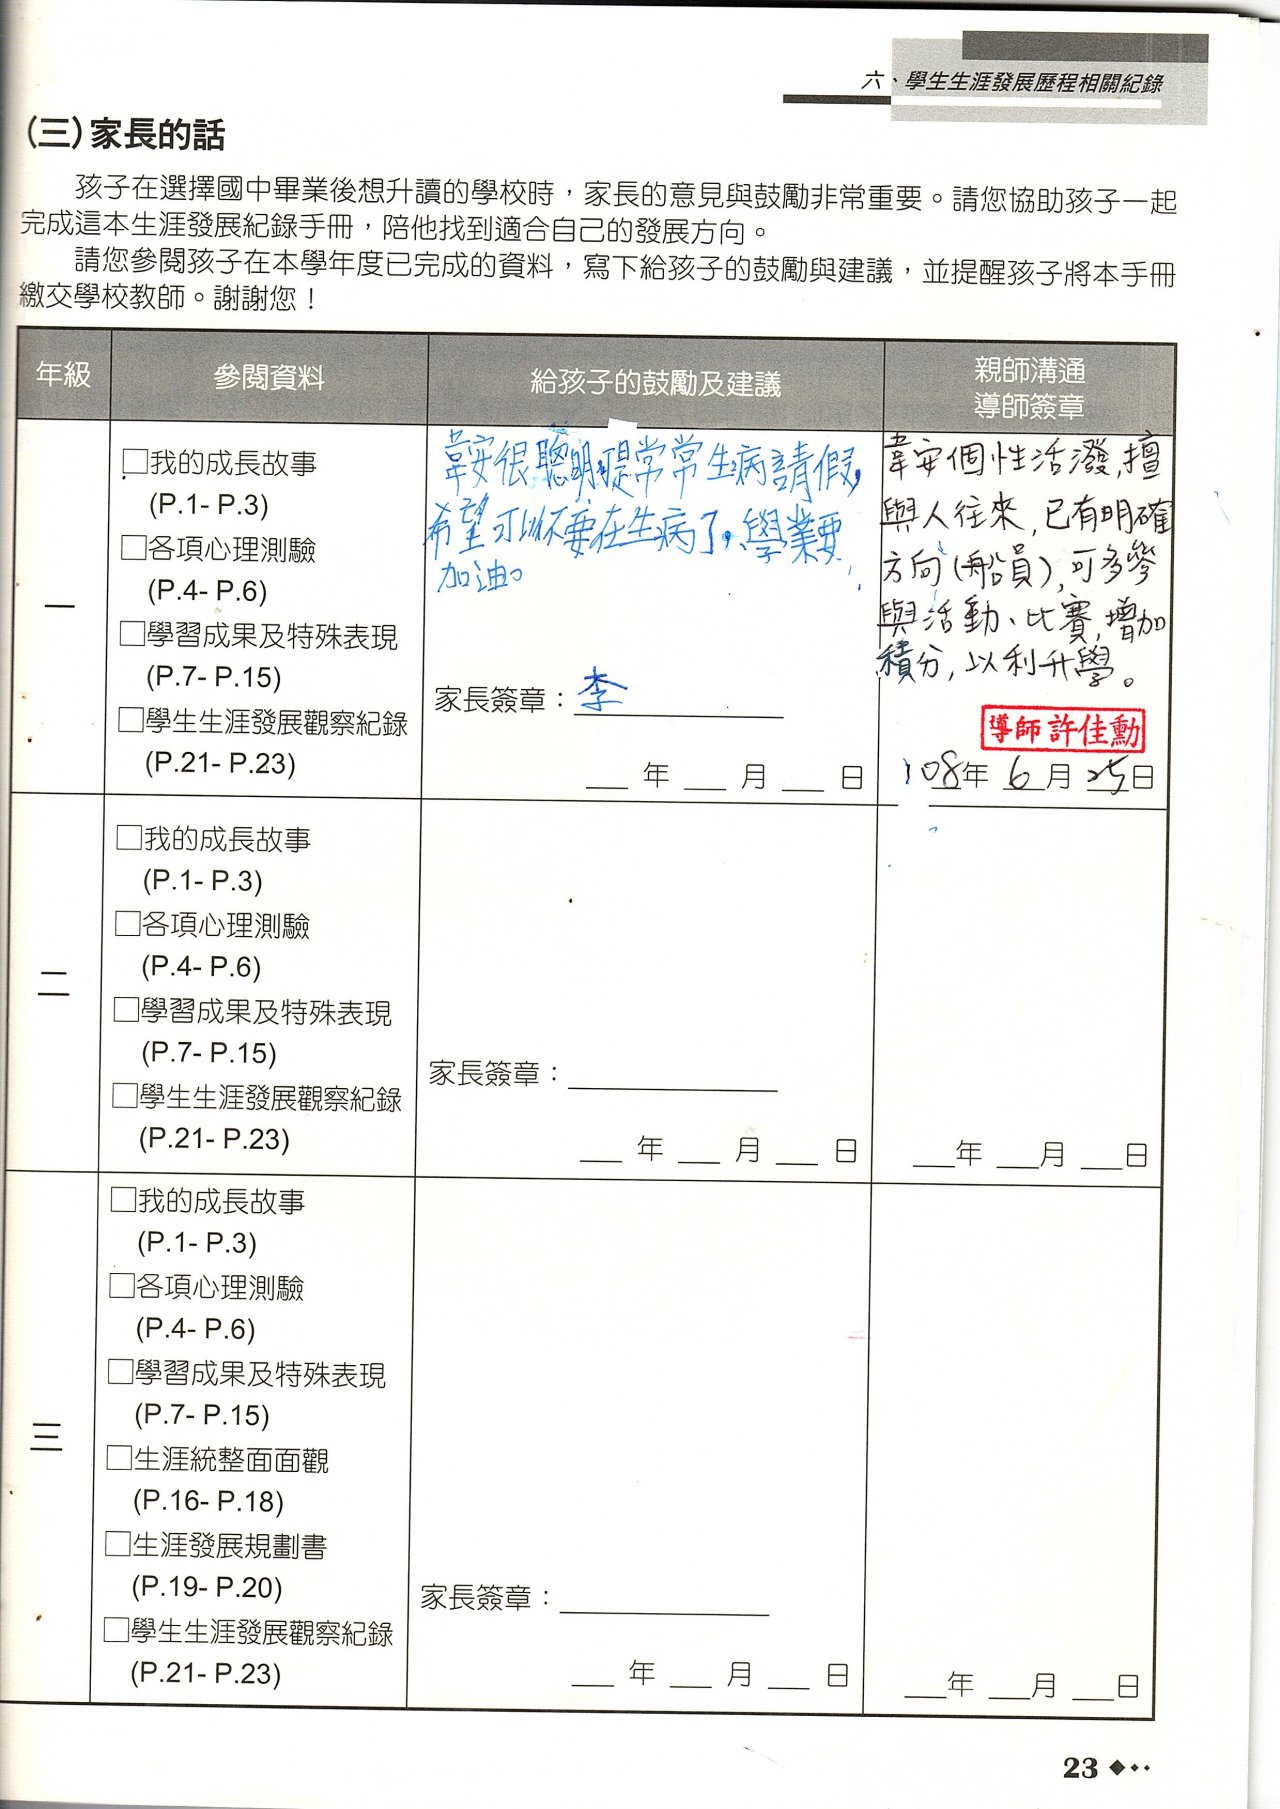 六、學生生涯發展歷程相關紀錄
(三)家長的話
孩子在選擇國中畢業後想升讀的學校時，家長的意見與鼓勵非常重要。請您協助孩子一起
完成這本生涯發展紀錄手冊，陪他找到適合自己的發展方向。
請您參閱孩子在本學年度已完成的資料，寫下給孩子的鼓勵與建議，並提醒孩子將本手冊
繳交學校教師。謝謝您！
年級
參閱資料
給孩子的鼓勵及建議
親師溝通
導師簽章
一
□我的成長故事
(P.1- P.3)
□各項心理測驗
(P.4- P.6)
□學習成果及特殊表現
(P.7- P.15)
□學生生涯發展觀察紀錄
(P.21- P.23)
韋安很聰明,是常常生病請假,
希望可以不要在生病了,學業要
加油。
家長簽章：李
年 月 日
韋安個性活潑,擅
與人往來,已有明確
方向(船員),可多參
與活動、比賽,增加
積分,以利升學。
導師 許佳勳
108年 6月 25日
二
□我的成長故事
(P.1- P.3)
□各項心理測驗
(P.4- P.6)
□學習成果及特殊表現
(P.7- P.15)
□學生生涯發展觀察紀錄
(P.21- P.23)
家長簽章：
年 月 日
年 月 日
三
□我的成長故事
(P.1- P.3)
□各項心理測驗
(P.4- P.6)
□學習成果及特殊表現
(P.7- P.15)
□生涯統整面面觀
(P.16- P.18)
□生涯發展規劃書
(P.19- P.20)
□學生生涯發展觀察紀錄
(P.21- P.23)
家長簽章：
年 月 日
年 月 日
23